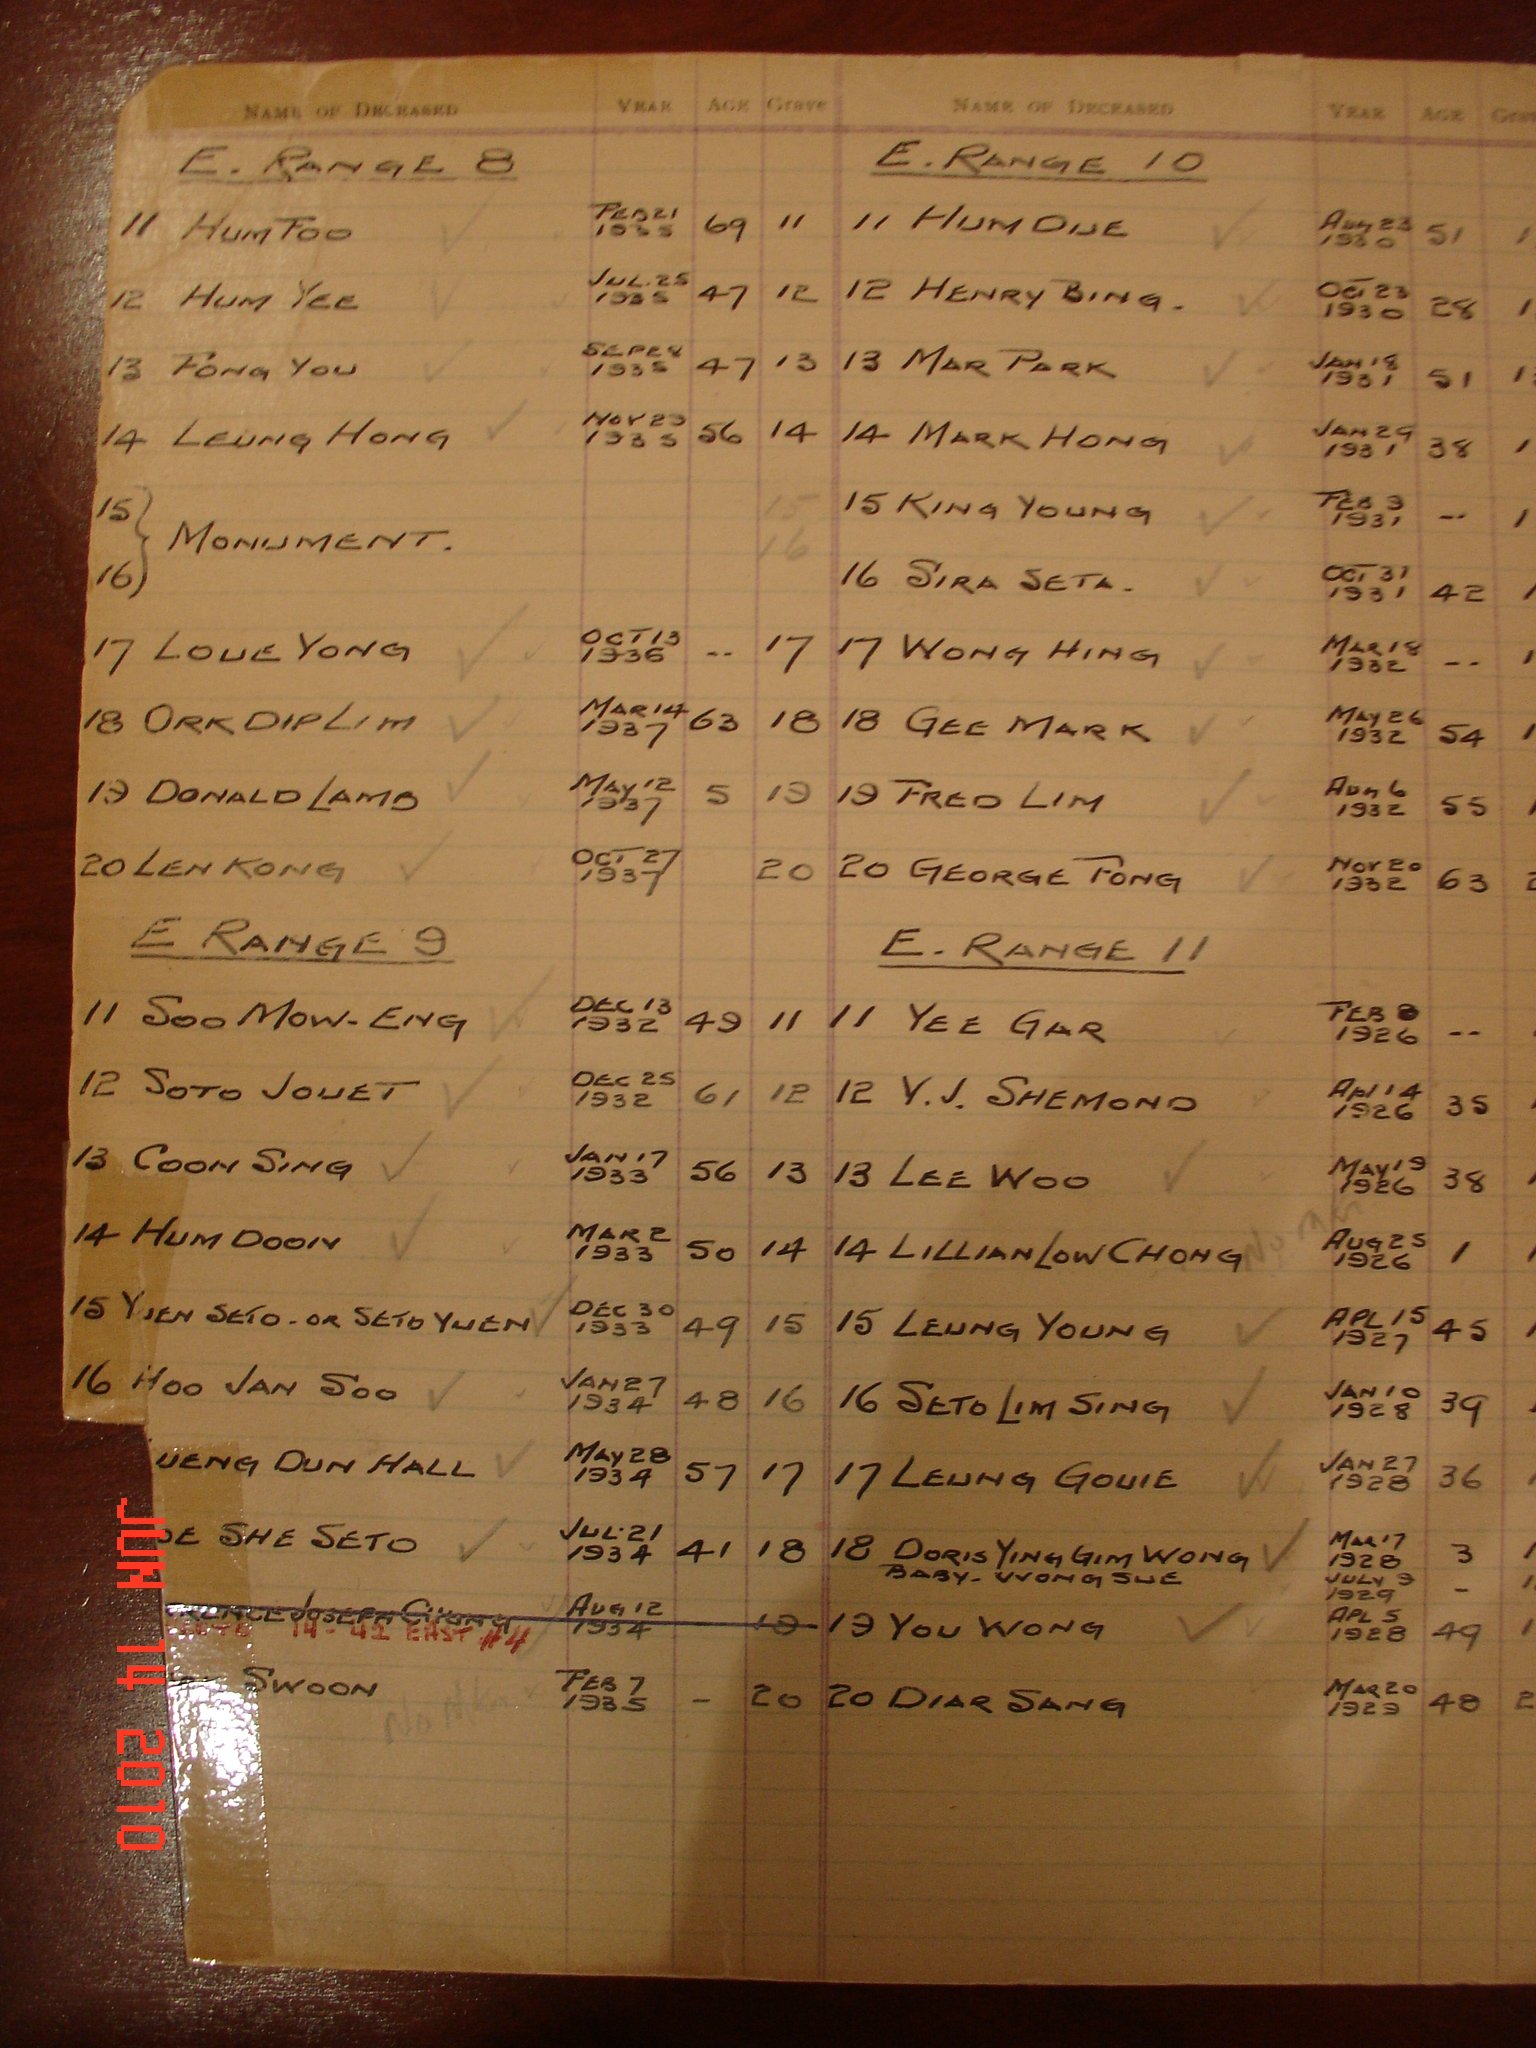 NAME OF DECEASED YEAR AGE Grave
E. RANGE 8
11 HUM FOO FEB 21 1935 69 11
12 HUM YEE JUL. 25 1935 47 12
13 FONG YOU SEPE 8 1935 47 13
14 LEUNG HONG NOV 23 1935 56 14
15 } MONUMENT. 15
16 16
17 LOUE YONG OCT 13 1936 -- 17
18 ORK DIP LIM MAR 14 1937 63 18
19 DONALD LAMB MAY 12 1937 5 19
20 LEN KONG OCT 27 1937 20
E RANGE 9
11 SOO MOW-ENG DEC 13 1932 49 11
12 SOTO JOUET DEC 25 1932 61 12
13 COON SING JAN 17 1933 56 13
14 HUM DOON MAR 2 1933 50 14
15 YUEN SETO - OR SETO YUEN DEC 30 1933 49 15
16 HOO JAN SOO JAN 27 1934 48 16
UENG DUN HALL MAY 28 1934 57 17
SHE SETO JUL. 21 1934 41 18
JOSEPH CHONG AUG 12 1934 19
14 - 42 EAST #4
SWOON FEB 7 1935 - 20
No
NAME OF DECEASED YEAR AGE
E. RANGE 10
11 HUM DUE AUG 23 1930 51
12 HENRY BING. OCT 23 1930 28
13 MAR PARK JAN 18 1931 51
14 MARK HONG JAN 29 1931 38
15 KING YOUNG FEB 3 1931 --
16 SIRA SETA. OCT 31 1931 42
17 WONG HING MAR 18 1932 --
18 GEE MARK MAY 26 1932 54
19 FRED LIM AUG 6 1932 55
20 GEORGE FONG NOV 20 1932 63
E. RANGE 11
11 YEE GAR FEB 8 1926 --
12 V. J. SHEMOND APL 14 1926 35
13 LEE WOO MAY 19 1926 38
No
14 LILLIAN LOW CHONG AUG 25 1926 1
15 LEUNG YOUNG APL 15 1927 45
16 SETO LIM SING JAN 10 1928 39
17 LEUNG GOUIE JAN 27 1928 36
18 DORIS YING GIM WONG MAR 17 1928 3
BABY - WONG SUE JULY 9 1929 -
19 YOU WONG APL 5 1928 49
20 DIAR SANG MAR 20 1929 48
JUN 14 2010